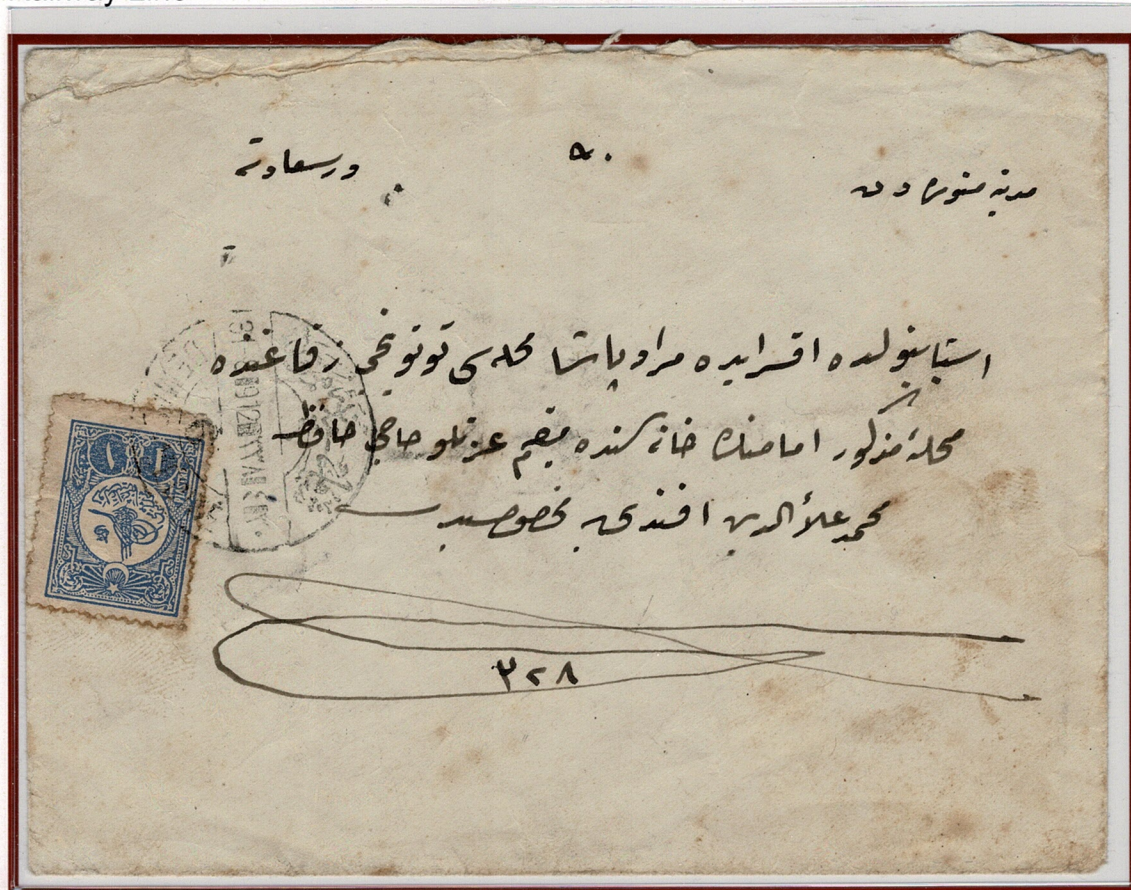 مدینهٔ منوره دن
در سعادته
استانبولده اقسرایده مراد پاشا محله سی توتونجی زقاغنده
محلهٔ مذکور امامنك خانه سنده مقیم عزتلو حاجی حافظ
محمد علاءالدین افندی یه مخصوصدر
٣٢٨